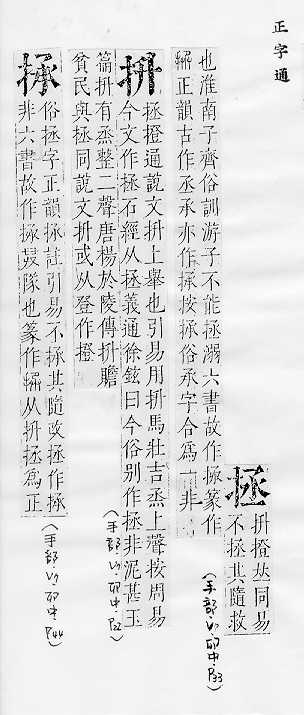 正字通
拯
抍撜𠀤同易
不拯其隨救
也淮南子齊俗訓游子不能拯溺六書故作篆作
正韻古作丞承亦作按俗承字合爲一非
(手部·卯中·P33)
抍
拯撜通說文抍上舉也引易用抍馬壯吉烝上聲按周易
今文作拯石經从拯義通徐鉉曰今俗別作拯非泥甚玉
篇抍有烝整二聲唐楊於陵傳抍贍
貧民與拯同說文抍或从登作撜
(手部·卯中·P22)
俗拯字正韻註引易不其隨改拯作
非六書故作隊也篆作从抍拯爲正
(手部·卯中·P44)